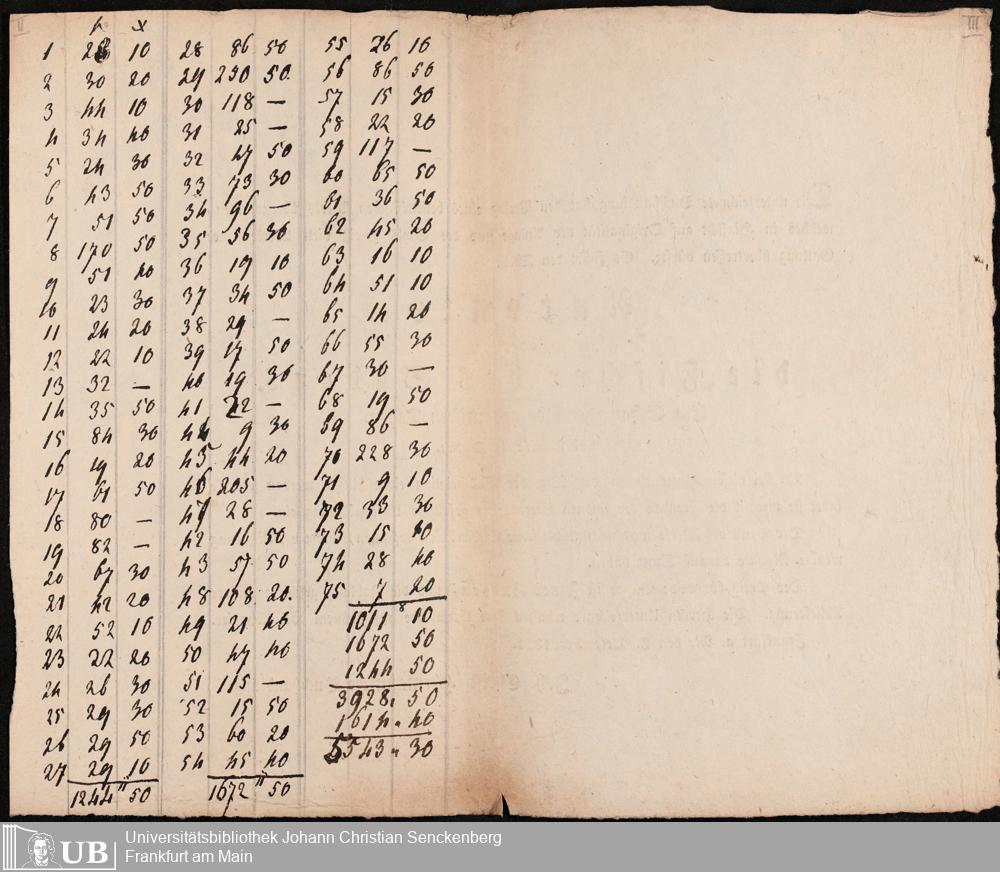 II III
f x
1 28 10 28 86 50 55 26 10
2 30 20 29 230 50 56 86 50
3 44 10 30 118 — 57 15 30
4 34 40 31 25 — 58 22 20
5 24 30 32 47 50 59 117 —
6 43 50 33 73 30 60 65 50
7 51 50 34 96 — 61 36 50
8 170 50 35 56 30 62 45 20
9 51 20 36 19 10 63 16 10
10 23 30 37 34 50 64 51 10
11 24 20 38 29 — 65 14 20
12 22 10 39 17 50 66 55 30
13 32 — 40 19 30 67 30 —
14 35 50 41 22 — 68 19 50
15 84 30 44 9 30 69 86 —
16 19 20 45 44 20 70 228 30
17 61 50 46 205 — 71 9 10
18 80 — 47 28 — 72 33 30
19 82 — 42 16 50 73 15
20 67 30 43 57 50 74 28 40
21 42 20 48 108 20 75 7 20
22 52 10 49 21 40 1011 10
23 22 20 50 47 40 1672 50
24 26 30 51 115 — 1244 50
25 29 30 52 15 50 3928 50
26 29 50 53 60 20 1614 40
27 29 10 54 45 40 5543 30
1244 " 50 1672 " 50
UB Universitätsbibliothek Johann Christian Senckenberg
Frankfurt am Main